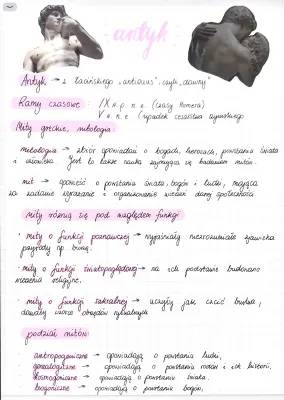 antyk
Antyk → z łacińskiego "antiquus", czyli "dawny"
Ramy czasowe: IX w p. n. e. (czasy Homera)
V w n. e. (upadek cesarstwa rzymskiego
Mity greckie, mitologia
mitologia → zbiór opowiadań o bogach, herosach, powstaniu świata
i człowieka. Jest to także nauka zajmująca się badaniem mitów.
mit → opowieść o powstaniu świata, bogów i ludzi, mająca
za zadanie wyrażanie i organizowanie wierzeń danej społeczności
mity różnią się pod względem funkcji
• mity o funkcji poznawczej → wyjaśniały niezrozumiałe zjawiska
przyrody np. burzę.
• mity o funkcji światopoglądowej → na ich podstawie budowano
wierzenia religijne.
• mity o funkcji sakralnej → uczyły jak czcić bóstwa,
dawały wzorce obrzędów rytualnych
podział mitów:
antropogeniczne → opowiadają o powstaniu ludzi,
genealogiczne → opowiadają o powstaniu rodów i ich historii,
kosmogoniczne → opowiadają o powstaniu świata,
teogoniczne → opowiadają o powstaniu bogów,